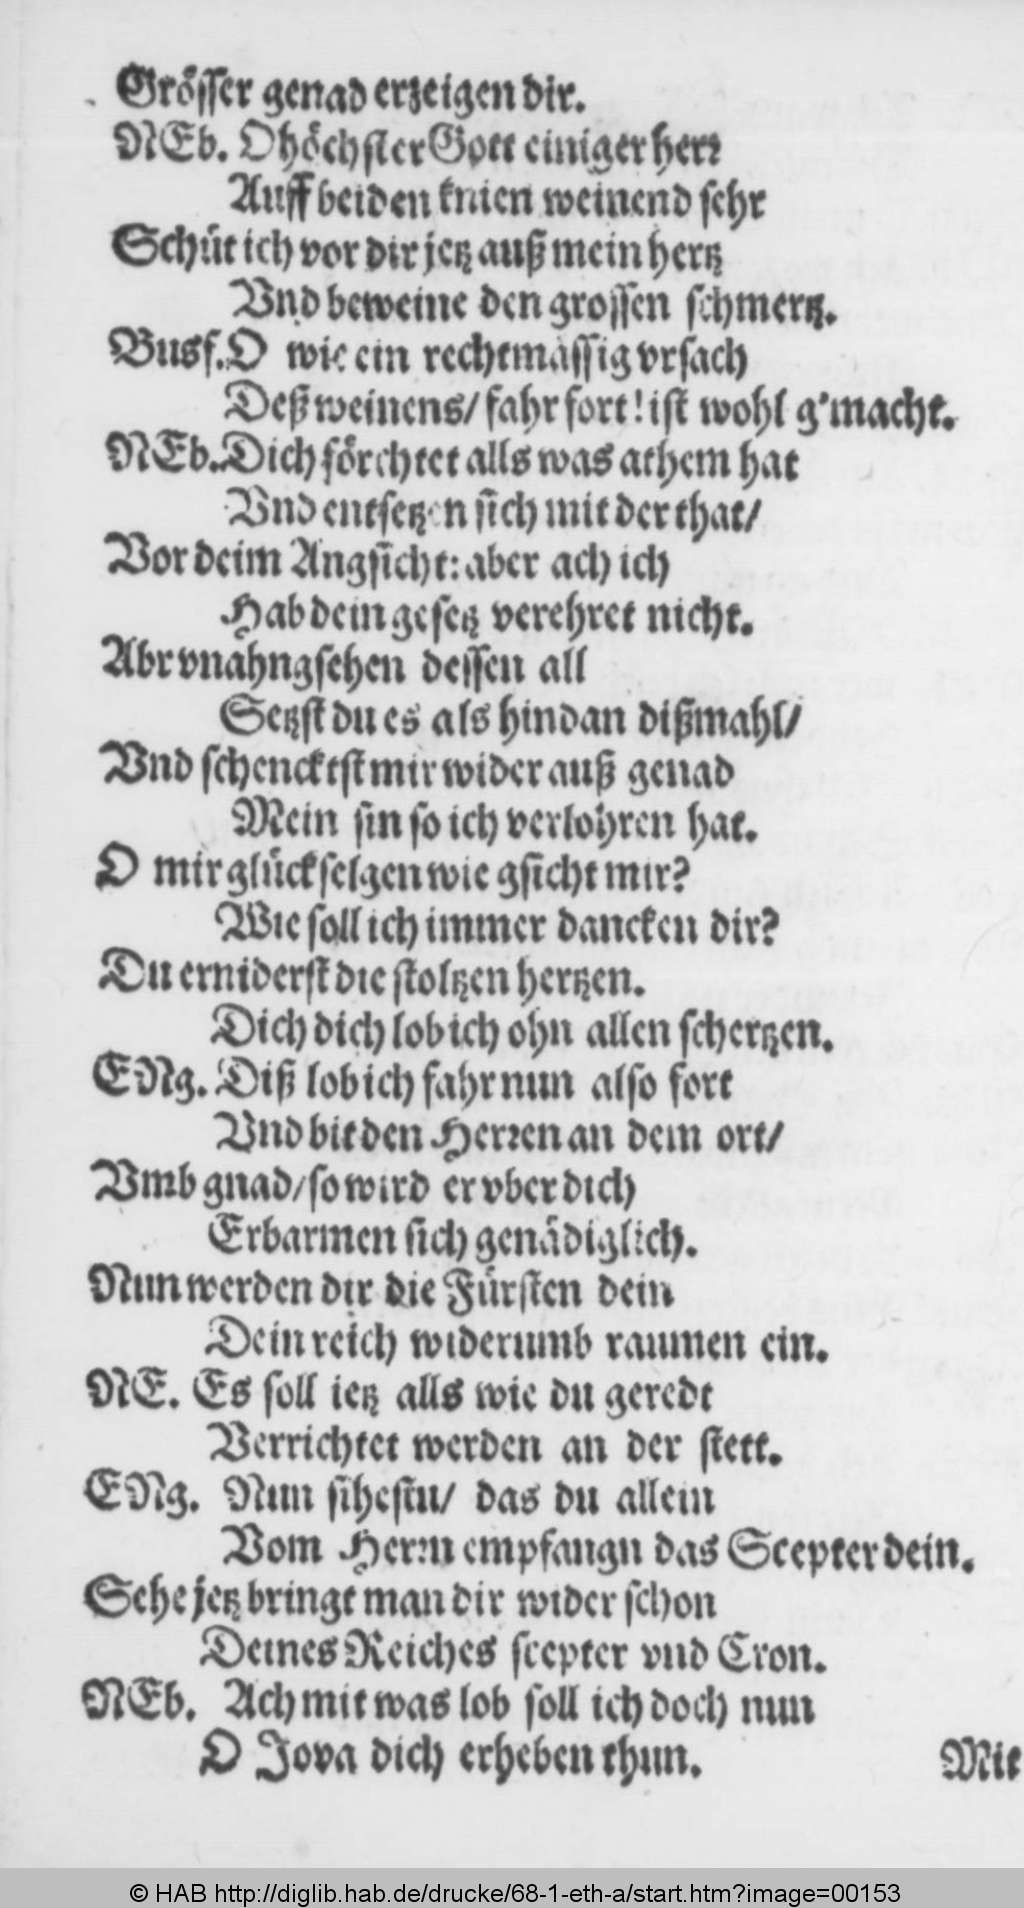 Grösser genad erzeigen dir.
NEb. O höchster Gott einiger herr
Auff beiden knien weinend sehr
Schüt ich vor dir jetz auß mein hertz
Vnd beweine den grossen schmertz.
Busf. O wie ein rechtmässig vrsach
Deß weinens/ fahr fort! ist wohl g'macht.
NEb. Dich förchtet alls was athem hat
Vnd entsetzen sich mit der that/
Vor deim Angsicht: aber ach ich
Hab dein gesetz verehret nicht.
Abr vnahngsehen dessen all
Setzst du es als hindan dißmahl/
Vnd schencktst mir wider auß genad
Mein sin so ich verlohren hat.
O mir glückselgen wie gsicht mir?
Wie soll ich immer dancken dir?
Du erniderst die stoltzen hertzen.
Dich dich lob ich ohn allen schertzen.
ENg. Diß lob ich fahr nun also fort
Vnd bit den Herren an dem ort/
Vmb gnad/ so wird er vber dich
Erbarmen sich genädiglich.
Nun werden dir die Fürsten dein
Dein reich widerumb raumen ein.
NE. Es soll ietz alls wie du geredt
Verrichtet werden an der stett.
ENg. Nun sihestu/ das du allein
Vom Herrn empfangn das Scepter dein.
Sehe jetz bringt man dir wider schon
Deines Reiches scepter vnd Cron.
NEb. Ach mit was lob soll ich doch nun
O Jova dich erheben thun.
Mit
© HAB http://diglib.hab.de/drucke/68-1-eth-a/start.htm?image=00153